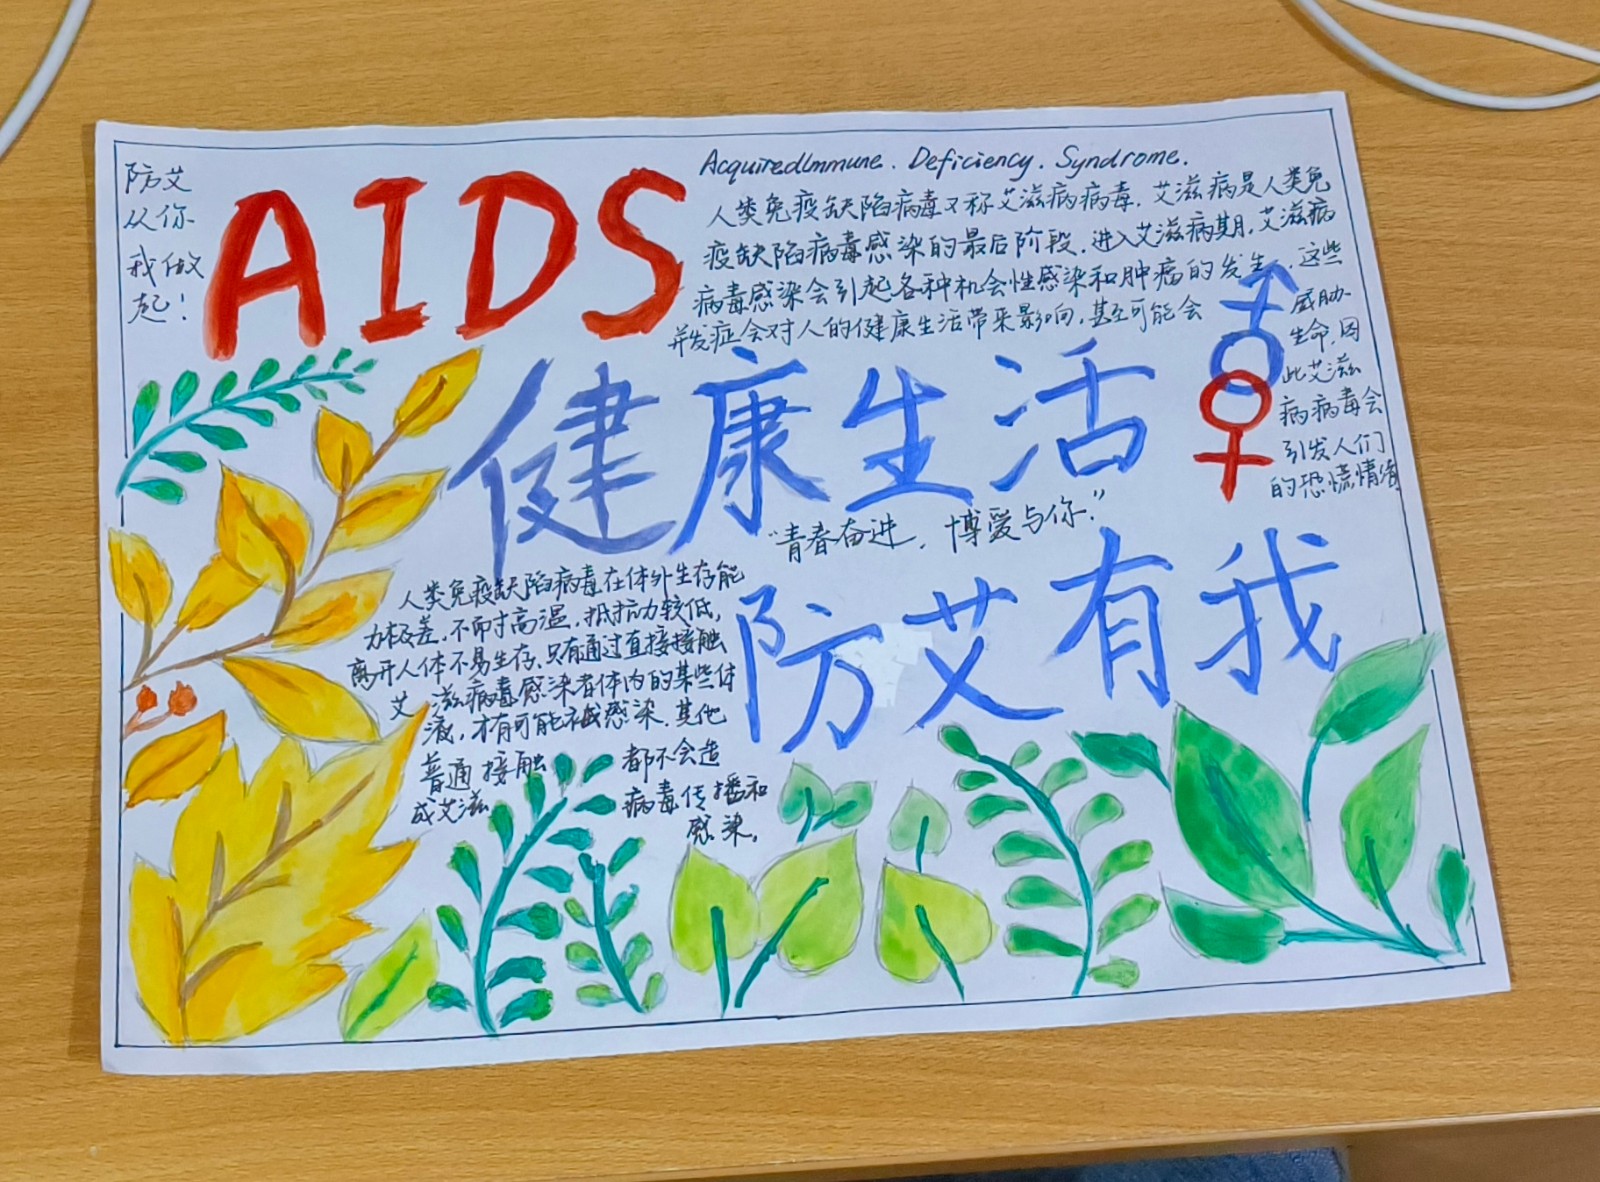 防艾
从你
我做
起！
AIDS
AcquiredImmune. Deficiency. Syndrome.
人类免疫缺陷病毒又称艾滋病病毒，艾滋病是人类免
疫缺陷病毒感染的最后阶段，进入艾滋病期，艾滋病
病毒感染会引起各种机会性感染和肿瘤的发生，这些
并发症会对人的健康生活带来影响，甚至可能会
威胁
生命，因
此艾滋
病病毒会
引发人们
的恐慌情绪
健康生活
“青春奋进，博爱与你”
防艾有我
人类免疫缺陷病毒在体外生存能
力极差，不耐高温，抵抗力较低，
离开人体不易生存，只有通过直接接触
艾滋病毒感染者体内的某些体
液，才有可能被感染，其他
普通接触都不会造
成艾滋病毒传播和
感染。